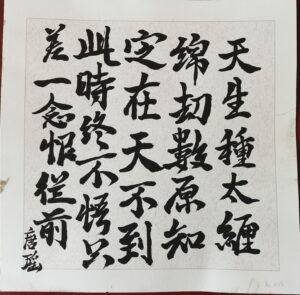 天生種太纏
綿劫數原知
定在天不到
此時終不悟只
差一念恨從前